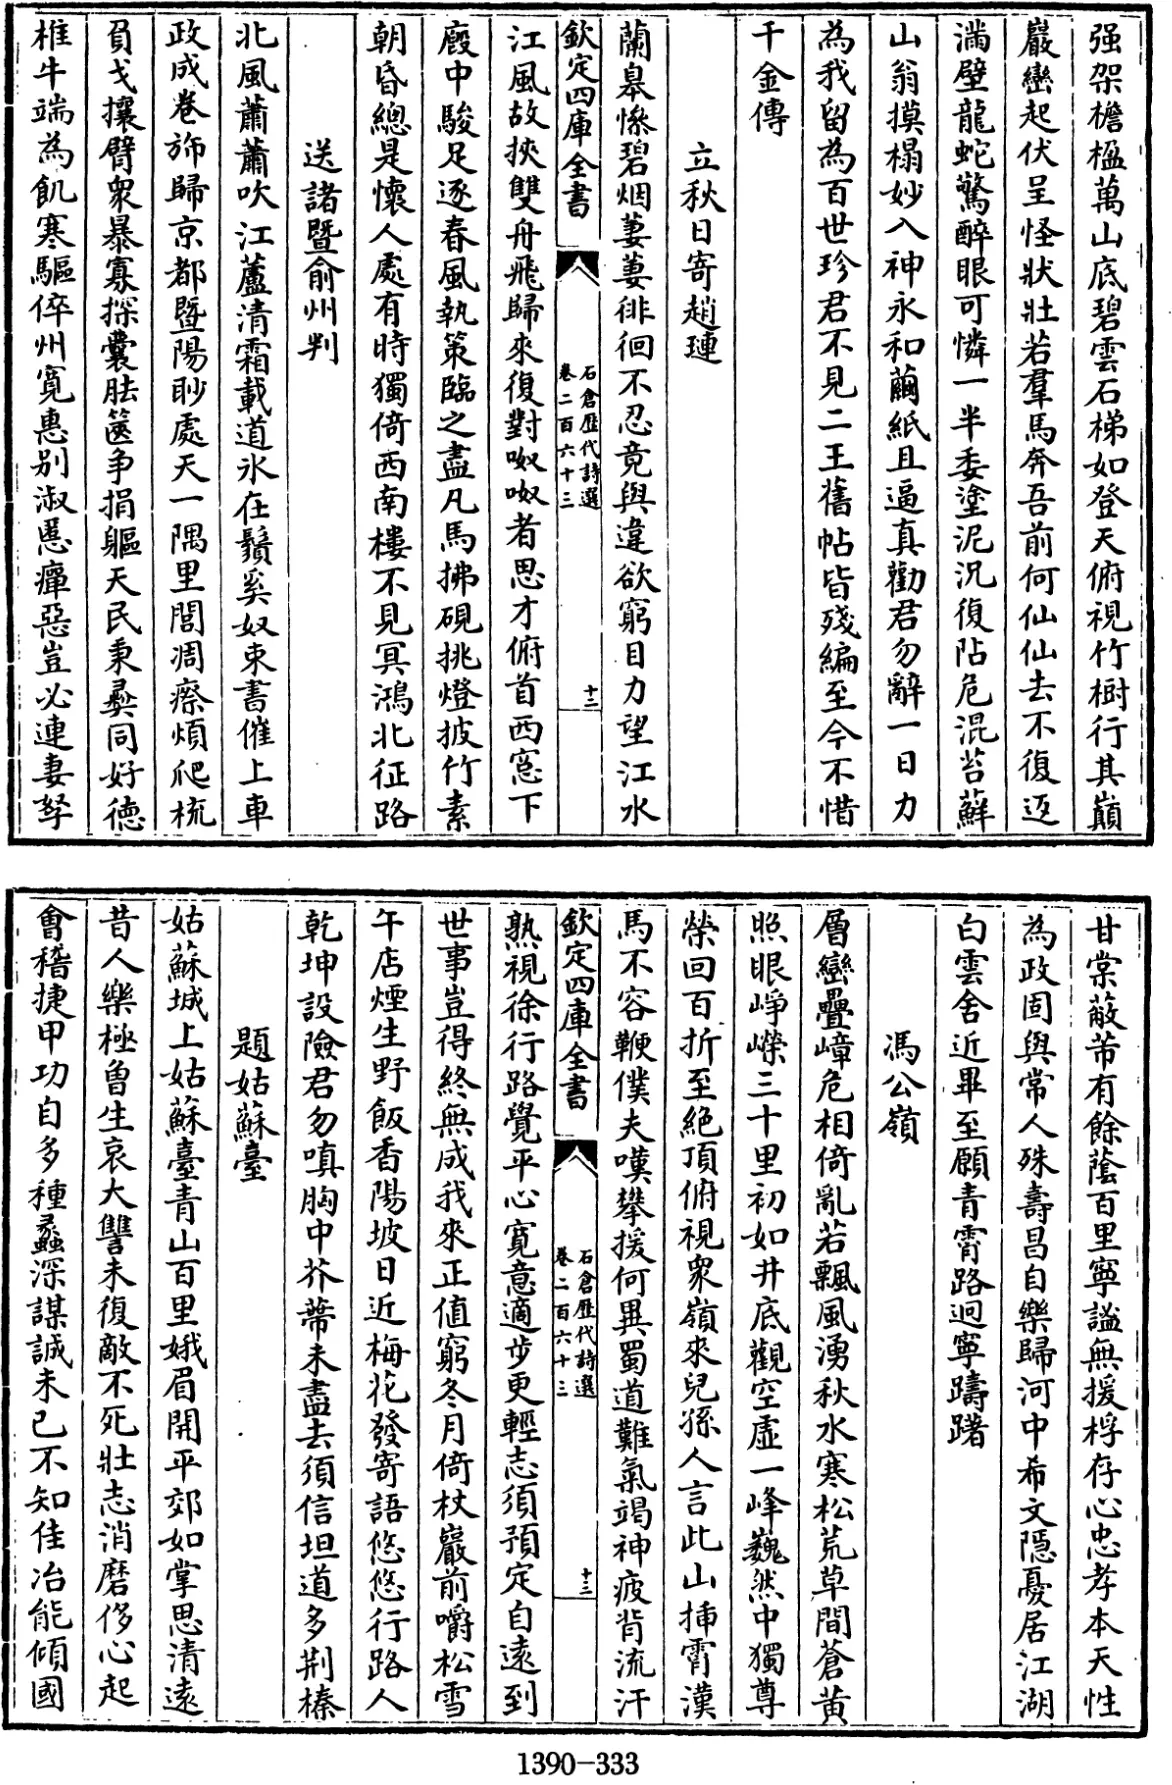 强架檐楹萬山底碧雲石梯如登天俯視竹樹行其巔
巖巒起伏呈怪狀壯若羣馬奔吾前何仙仙去不復返
滿壁龍蛇驚醉眼可憐一半委塗泥況復阽危混苔蘚
山翁摸榻妙入神永和繭紙且逼真勸君勿辭一日力
為我留為百世珍君不見二王舊帖皆殘編至今不惜
千金傳
立秋日寄趙璉
蘭皋慘碧烟萋萋徘徊不忍竟與違欲窮目力望江水
欽定四庫全書
石倉歷代詩選
卷二百六十三
十三
江風故挾雙舟飛歸來復對呶呶者思才俯首西窓下
廏中駿足逐春風執策臨之盡凡馬拂硯挑燈披竹素
朝昏總是懷人處有時獨倚西南樓不見冥鴻北征路
送諸暨俞州判
北風蕭蕭吹江蘆清霜載道氷在鬚奚奴束書催上車
政成卷斾歸京都暨陽眇處天一隅里閭凋瘵煩爬梳
負戈攘臂衆暴寡探囊胠篋争捐軀天民秉彝同好德
椎牛端為飢寒驅倅州寬惠别淑慝癉惡豈必連妻孥
甘棠蔽芾有餘蔭百里寧謐無援桴存心忠孝本天性
為政固與常人殊壽昌自樂歸河中希文隱憂居江湖
白雲舍近畢至願青霄路迥寧躊躇
馮公嶺
層巒疊嶂危相倚亂若飄風湧秋水寒松荒草間蒼黄
照眼崢嶸三十里初如井底觀空虛一峰巍然中獨尊
縈回百折至絶頂俯視衆嶺來兒孫人言此山揷霄漢
馬不容鞭僕夫嘆攀援何異蜀道難氣竭神疲背流汗
欽定四庫全書
石倉歷代詩選
卷二百六十三
十三
熟視徐行路覺平心寬意適步更輕志須預定自遠到
世事豈得終無成我來正值窮冬月倚杖巖前嚼松雪
午店煙生野飯香陽坡日近梅花發寄語悠悠行路人
乾坤設險君勿嗔胸中芥蒂未盡去須信坦道多荆榛
題姑蘇臺
姑蘇城上姑蘇臺青山百里娥眉開平郊如掌思清遠
昔人樂極魯生哀大讐未復敵不死壯志消磨侈心起
會稽捷甲功自多種蠡深謀誠未已不知佳冶能傾國
1390-333